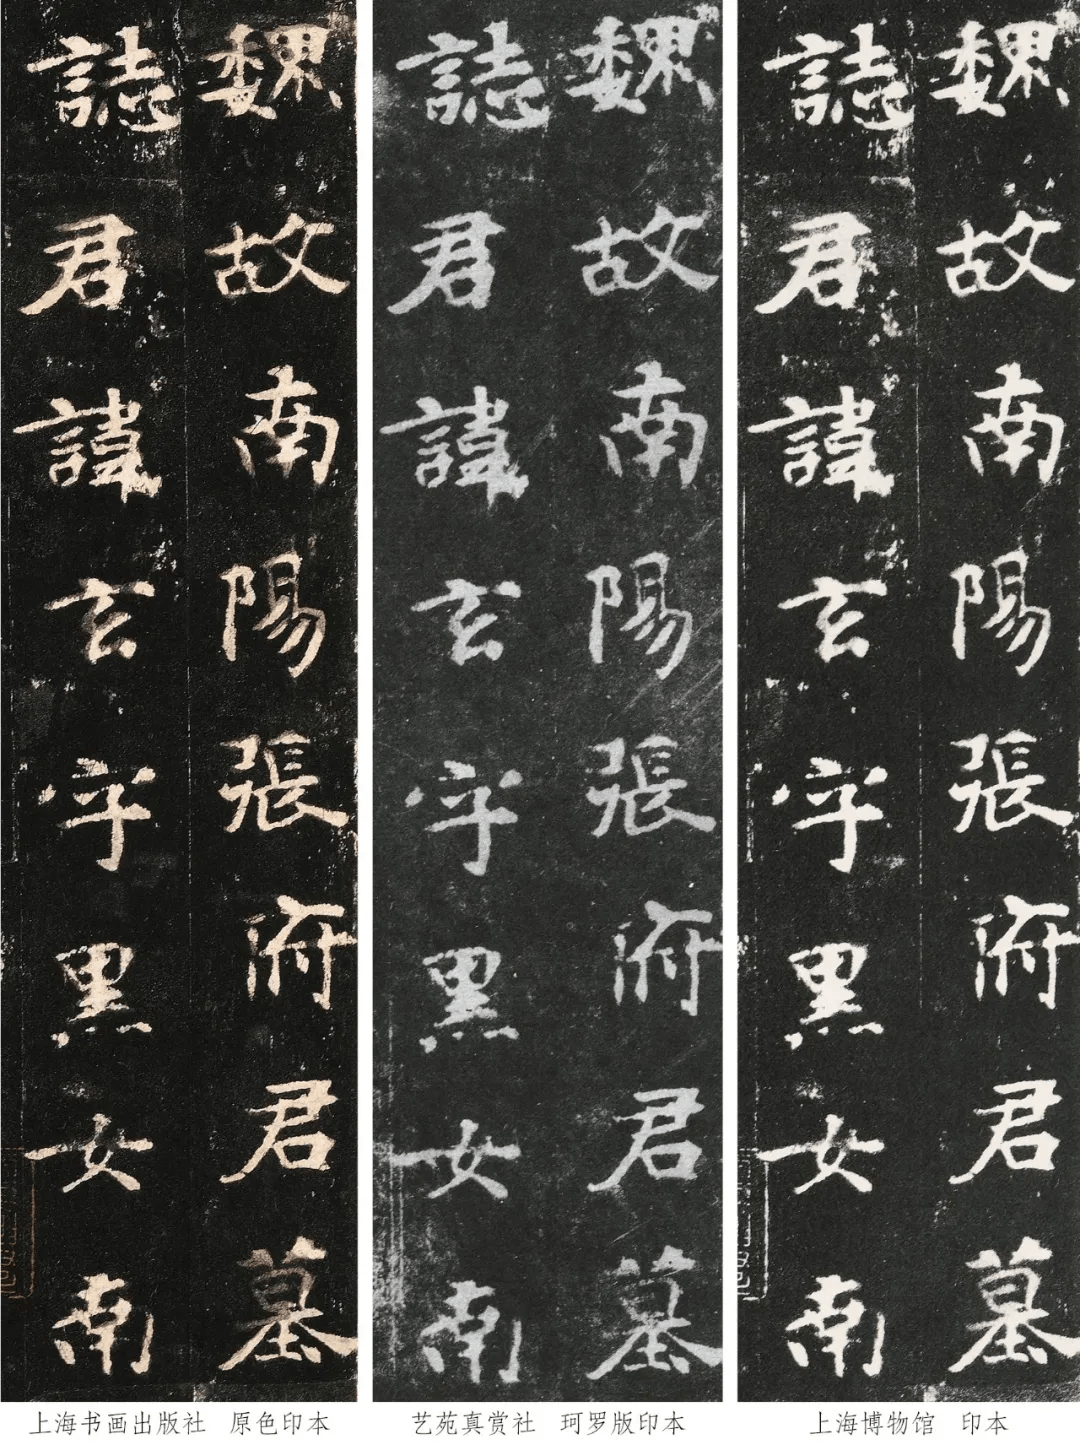 魏故南陽張府君墓
誌君諱玄字黑女南
上海书画出版社 原色印本
魏故南陽張府君墓
誌君諱玄字黑女南
艺苑真赏社 珂罗版印本
魏故南陽張府君墓
誌君諱玄字黑女南
上海博物馆 印本